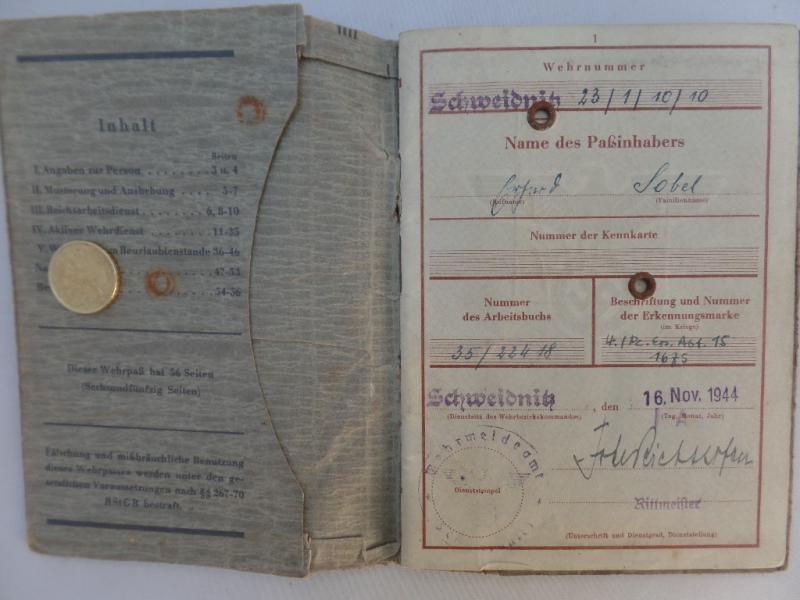 Inhalt
Seiten
I. Angaben zur Person . . . . . . . . 3 u. 4
II. Musterung und Aushebung . . . . 5-7
III. Reichsarbeitsdienst . . . . . . . 6, 8-10
IV. Aktiver Wehrdienst . . . . . . . 11-35
V. Beurlaubtenstande 36-46
47-53
54-56
Dieser Wehrpaß hat 56 Seiten
(Sechsundfünfzig Seiten)
Fälschung und mißbräuchliche Benutzung
dieses Wehrpasses werden unter den ge-
setzlichen Voraussetzungen nach §§ 267-70
RStGB bestraft.
1
Wehrnummer
Schweidnitz 23/1/10/10
Name des Paßinhabers
Erhard Sobel
(Rufname) (Familienname)
Nummer der Kennkarte
Nummer
des Arbeitsbuchs
35/224 18
Beschriftung und Nummer
der Erkennungsmarke
(im Kriege)
4./Pz. Ers. Abt. 15
1675
Schweidnitz, den 16. Nov. 1944
(Dienstsitz des Wehrbezirkskommandos) (Tag, Monat, Jahr)
Wehrmeldeamt
Dienststempel
Rittmeister
(Unterschrift und Dienstgrad, Dienststellung)